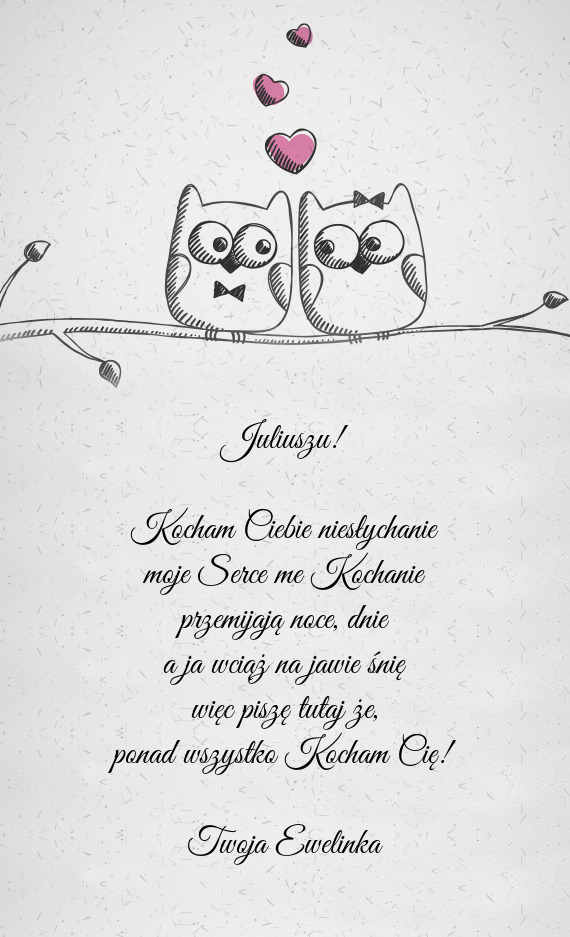 Juliuszu!
Kocham Ciebie niesłychanie
moje Serce me Kochanie
przemijają noce, dnie
a ja wciąż na jawie śnię
więc piszę tutaj że,
ponad wszystko Kocham Cię!
Twoja Ewelinka